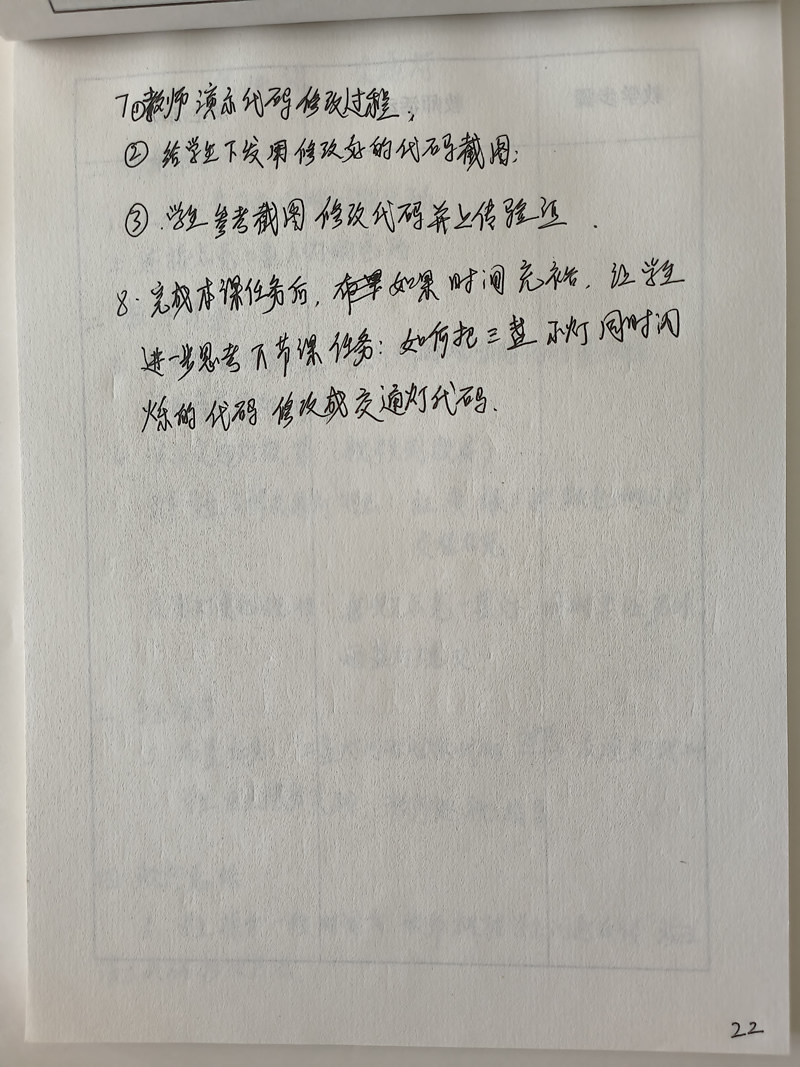 7①教师演示代码修改过程；
② 给学生下发用修改好的代码截图；
③ 学生参考截图修改代码并上传验证．
8．完成本课任务后，如果时间充裕，让学生
进一步思考下节课任务：如何把三盏小灯同时闪
烁的代码修改成交通灯代码．
22